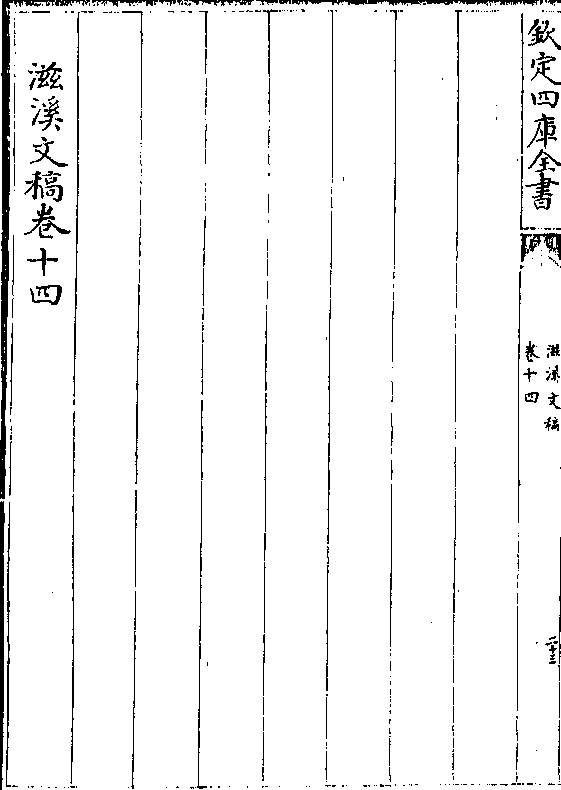 欽定四庫全書
滋溪文稿
卷十四
二十三
滋溪文稿卷十四